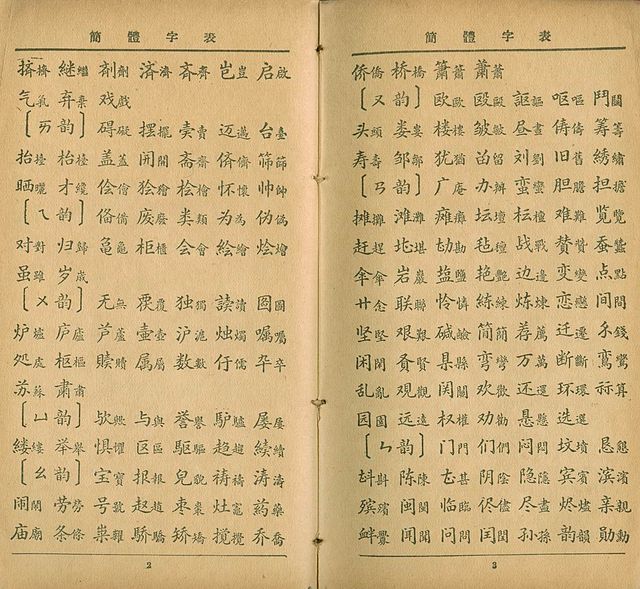 簡體字表
挤擠 継繼 剤劑 済濟 斉齊 岂豈 启啟
气氣 弃棄 戏戲
〔ㄞ韵〕 碍礙 摆擺 卖賣 迈邁 台臺
抬擡 枱檯 盖蓋 开開 斋齋 侪儕 筛篩
晒曬 才纔 侩儈 狯獪 桧檜 怀懷 帅帥
〔ㄟ韵〕 俻備 废廢 类類 为為 伪偽
对對 归歸 龟龜 柜櫃 会會 絵繪 烩燴
虽雖 岁歲
〔ㄨ韵〕 无無 覆 独獨 読讀 図圖
炉爐 庐廬 芦蘆 壶壺 沪滬 烛燭 嘱囑
処處 枢樞 赎贖 属屬 数數 伃儒 卒
苏蘇 肃肅
〔ㄩ韵〕 欤歟 与與 誉譽 驴驢 屡屢
缕縷 举舉 惧懼 区區 駆驅 趋趨 续續
〔ㄠ韵〕 宝寶 报報 皃貌 祷禱 涛濤
闹鬧 劳勞 号號 赵趙 枣棗 灶竈 药藥
庙廟 条條 粜糶 骄驕 矫矯 搅攪 乔喬
2
簡體字表
侨僑 桥橋 箫簫 萧蕭
〔ㄡ韵〕 欧歐 殴毆 讴謳 呕嘔 鬥鬭
头頭 娄婁 楼樓 皱皺 昼晝 俦儔 筹籌
寿壽 邹鄒 犹猶 留 刘劉 旧舊 绣繡
〔ㄢ韵〕 广庵 办辦 蛮蠻 胆膽 担擔
摊攤 滩灘 瘫癱 坛壇 枟檀 难難 览覽
赶趕 堪 勘 毡氈 战戰 賛贊 蚕蠶
伞傘 岩巖 盐鹽 艳艷 边邊 变變 点點
廿念 联聯 怜憐 練練 炼煉 恋戀 间間
坚堅 艰艱 碱鹼 简簡 荐薦 迁遷 錢
闲閑 贤賢 县縣 弯彎 万萬 断斷 鸾鸞
乱亂 观觀 関關 欢歡 还還 环環 祘算
园園 远遠 权權 劝勸 悬懸 选選
〔ㄣ韵〕 门門 们們 闷悶 坟墳 恳懇
斟 陈陳 甚 阴陰 隐隱 宾賓 滨濱
殡殯 闽閩 临臨 侭儘 尽盡 烬燼 亲親
衅釁 闻聞 问問 闰閏 孙孫 韵韻 勛勳
3